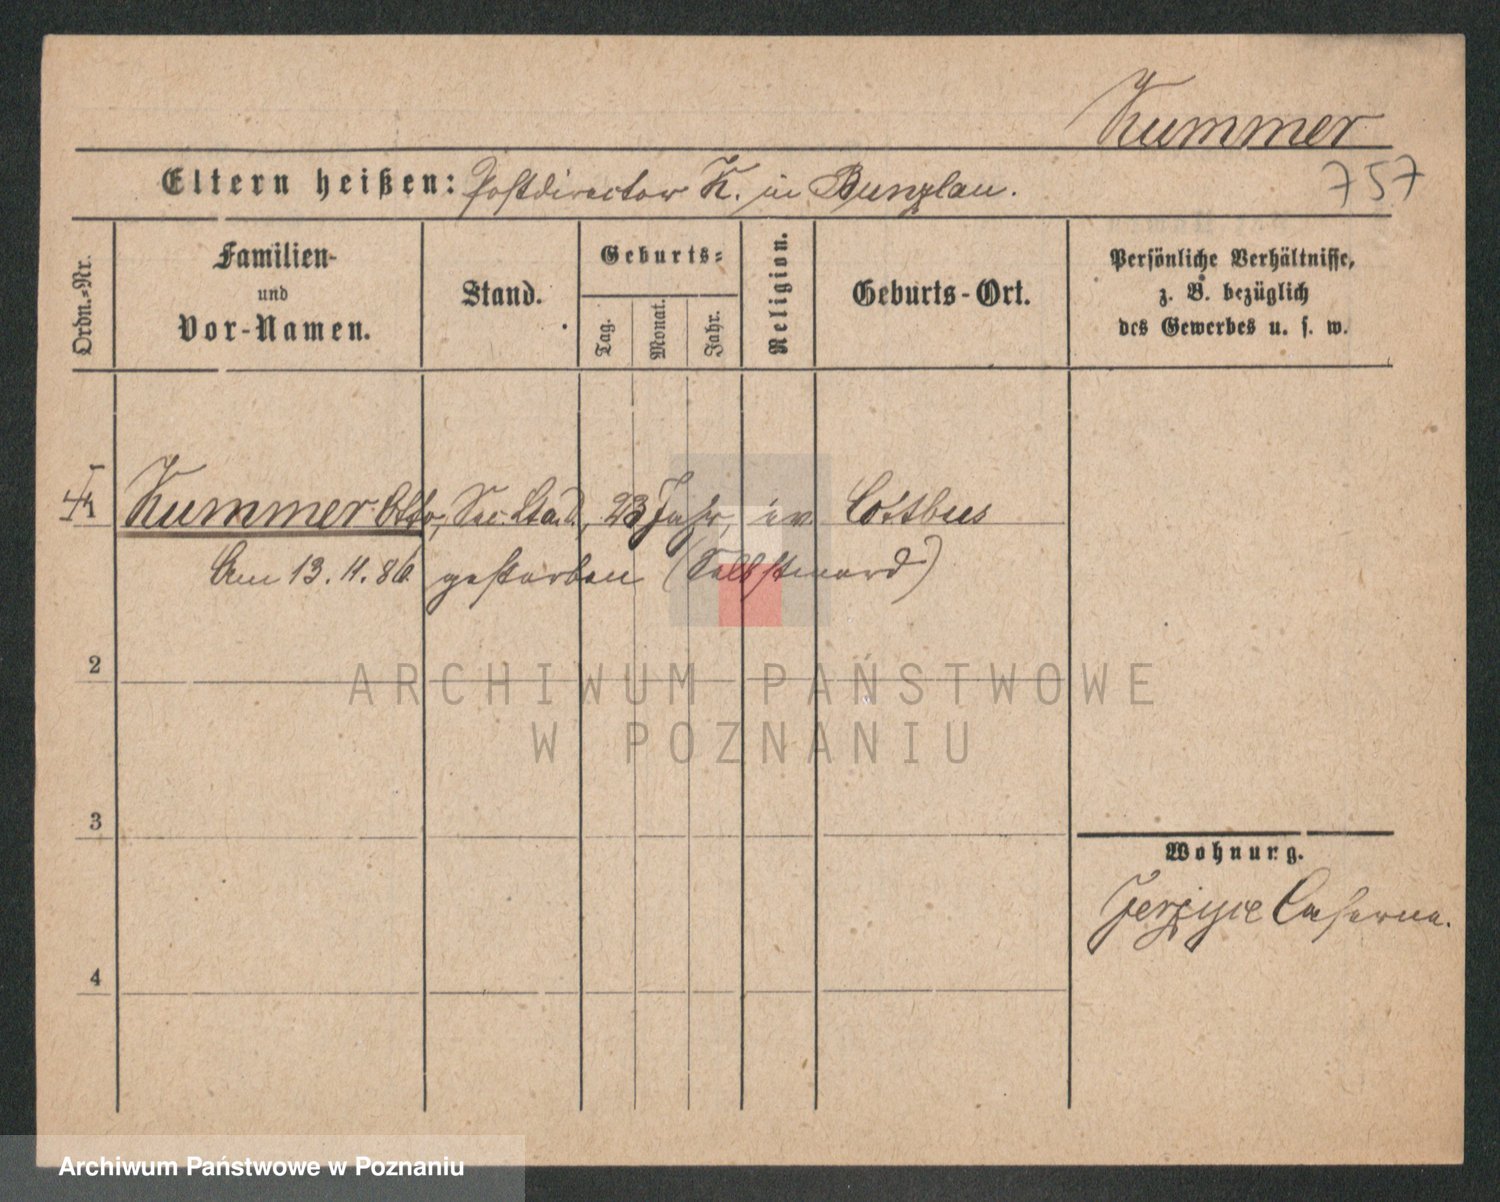 Kummer
Eltern heißen: Postdirector K. in Bunzlau.
757
Ordn.-Nr.
Familien- und Vor-Namen.
Stand.
Geburts-
Tag.
Monat.
Jahr.
Religion.
Geburts-Ort.
Persönliche Verhältnisse,
z. B. bezüglich
des Gewerbes u. s. w.
1 Kummer Otto, Sec. 23 Jahr, ev. Cottbus
Am 13. 11. 86 gestorben (Selbstmord)
2
ARCHIWUM PAŃSTWOWE
W POZNANIU
3
Wohnung.
Jerzyce Caserne.
4
Archiwum Państwowe w Poznaniu